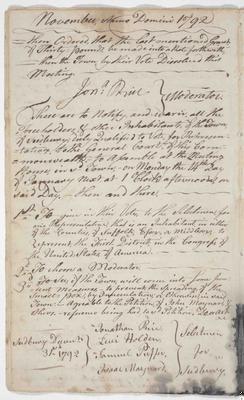 November Anno Domini 1792
then Ordered that the last mentioned Grant
of Thirty Pounds be made into a Rate forthwith
then the Town by their Vote Dissolved this
Meeting.
Jonª Rice } Moderator
These are to Notify and warn all the
Freeholders & other Inhabitants of the Town
of Sudbury Qualified to Vote for Represen-
tatives to the General Court of this Com-
monwealth to assemble at the Meeting
House in Town on Monday the Day
of January next at Clock afternoon on
Said Day, then and there
1st To give in their Votes to the Selectmen for
one Representative that is an Inhabitant in either
of the Counties of Suffolk Essex or Middlesex to
represent the First District in the Congress of
the United States of America
2d To choose a Moderator
3d To See if the Town will come into some
measures to prevent the Spreading of the
Small Pox, by Inoculation or Otherwise in said
Town Agreeable to the Petition of John Maynard &
others, reference being had to Petition
Sudbury Decemr
31st 1792
Jonathan Rice
Levi Holden
Samuel Puffer
Isaac Maynard
} Selectmen
for
Sudbury